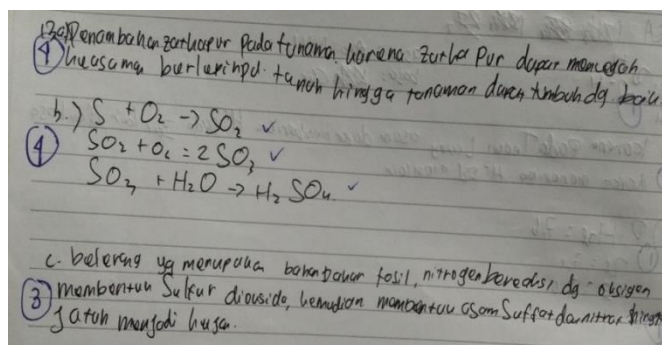 13a) Penambahan zat kapur pada tanaman karena zat kapur dapat mencegah
4 keasaman berlebih pd. tanah hingga tanaman dapat tumbuh dg baik
b.) S + O2 → SO2 ✓
4 SO2 + O2 = 2 SO3 ✓
SO3 + H2O → H2 SO4. ✓
c. belerang yg merupakan bahan bakar fosil, nitrogen bereaksi dg oksigen
3 membentuk Sulfur dioksida, kemudian membentuk asam Sulfat dan nitrat hingga
jatuh menjadi hujan.